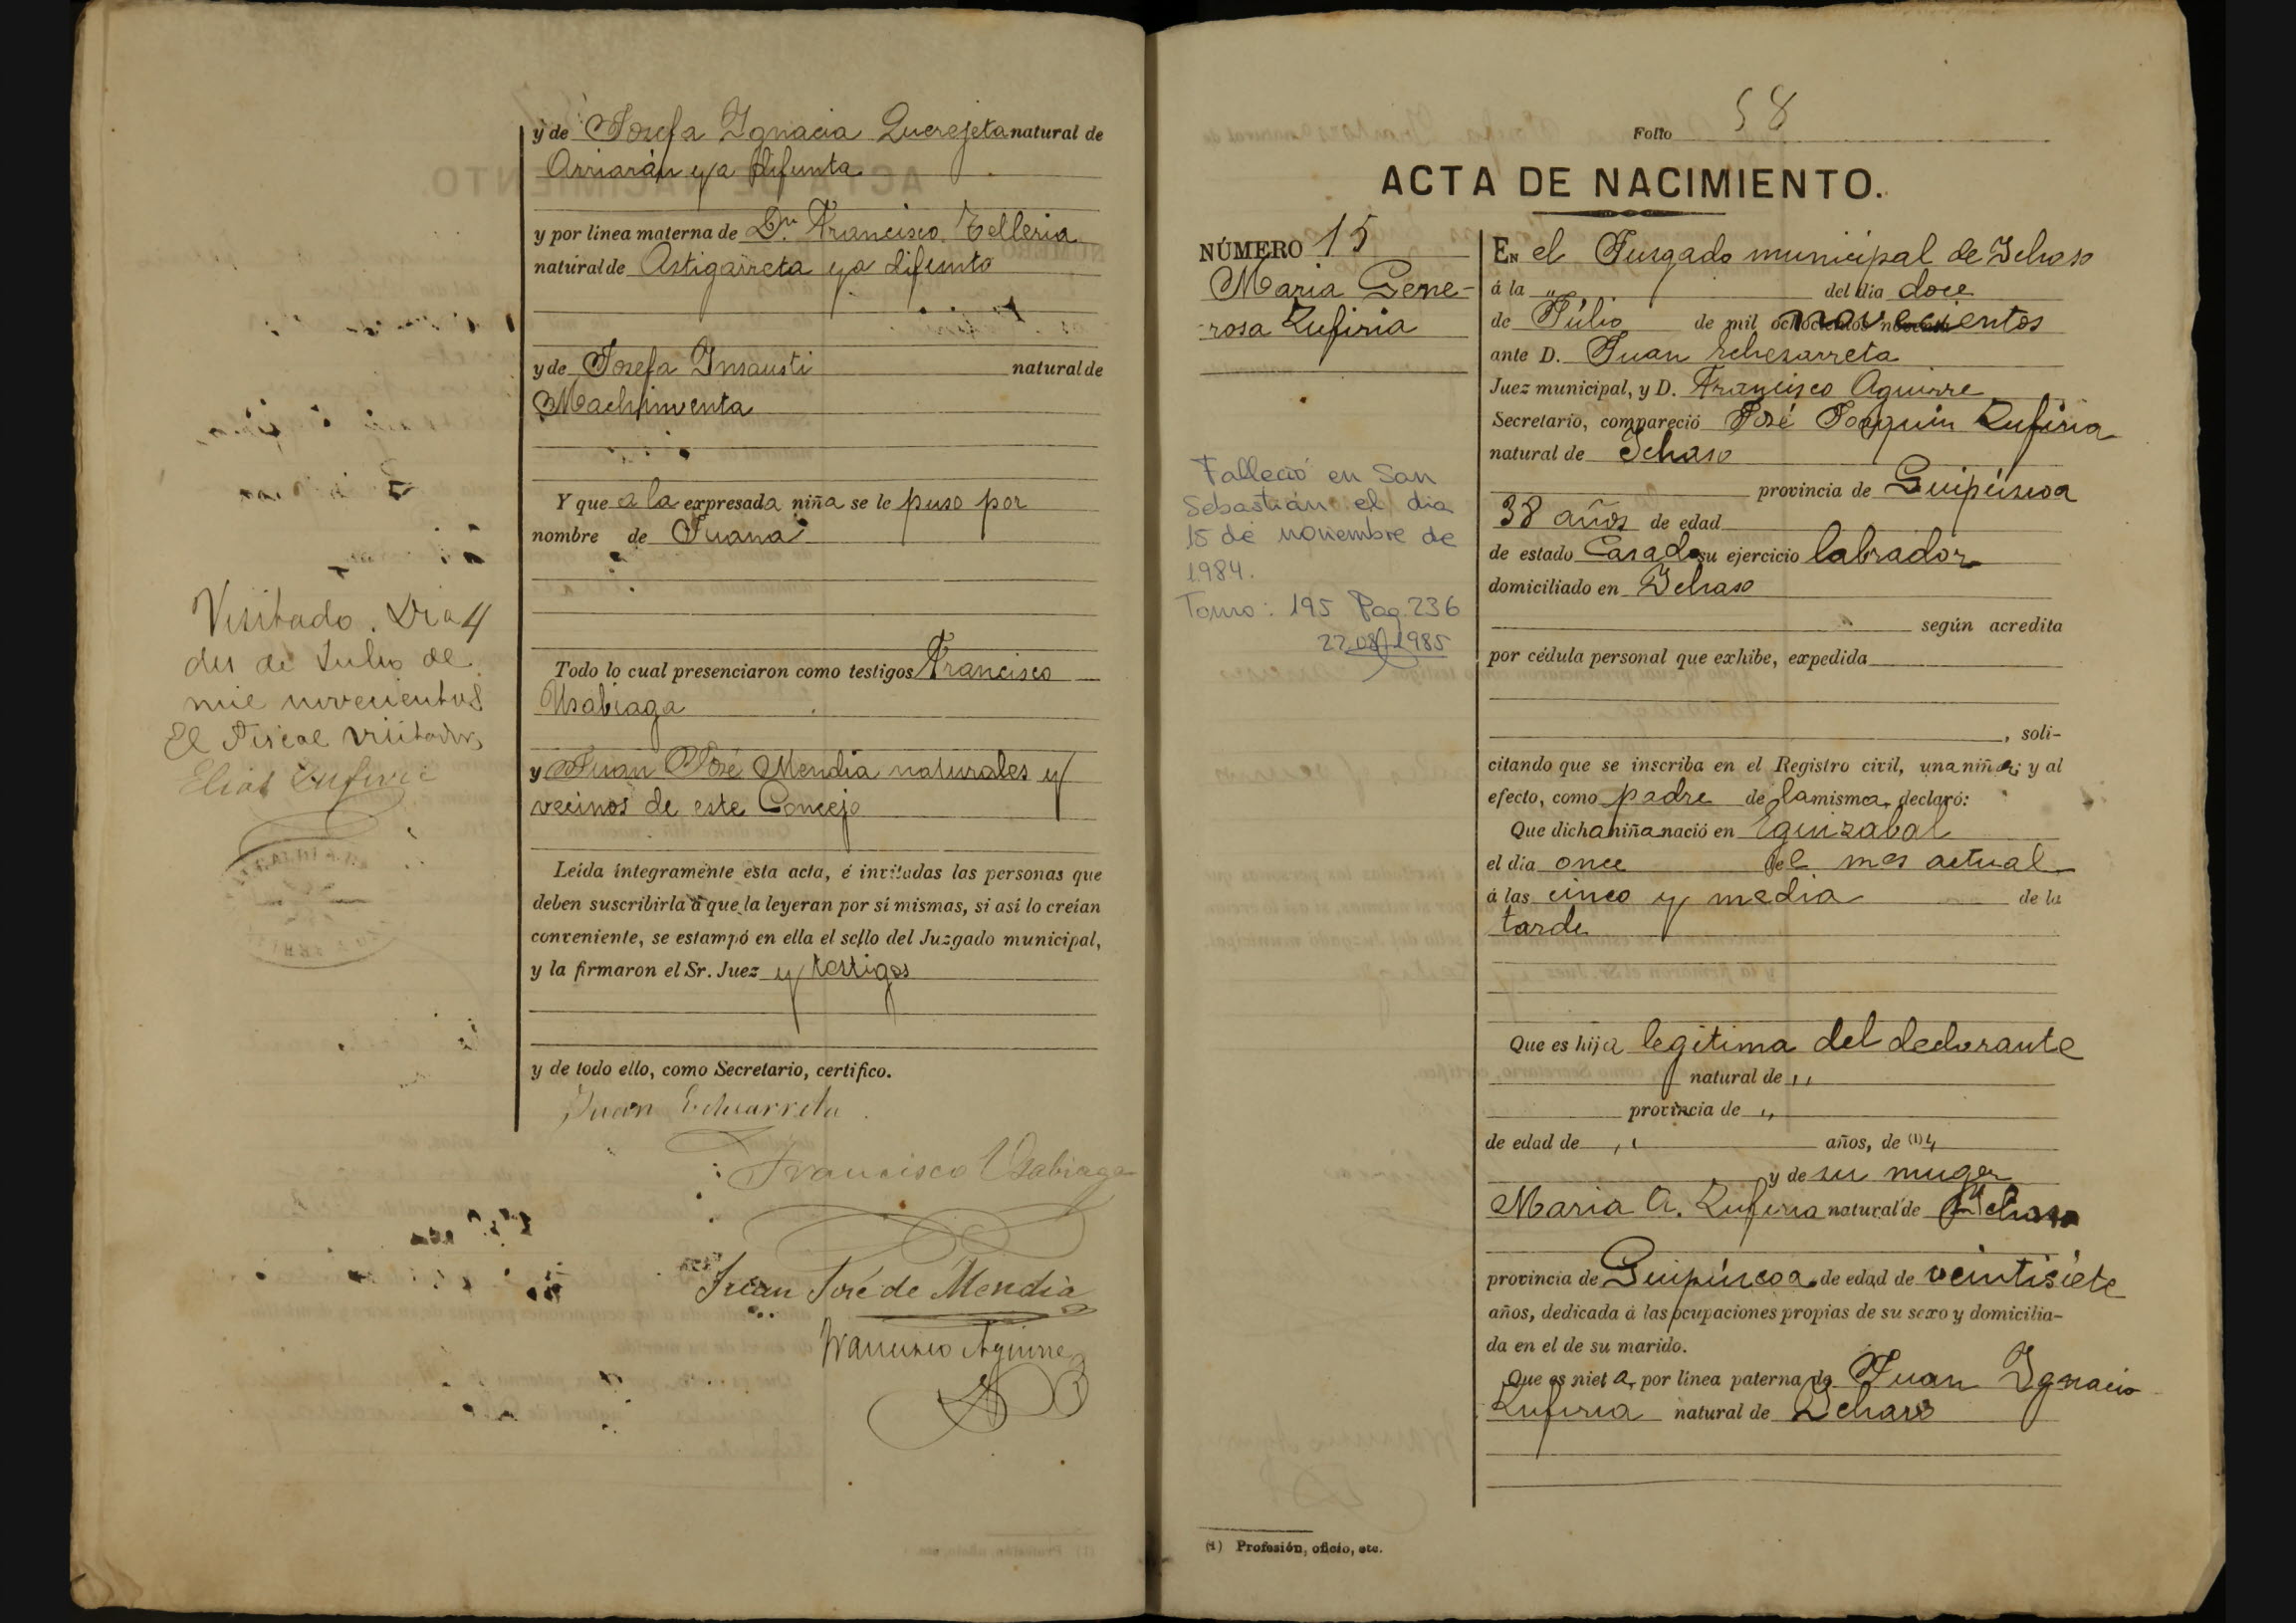 y de Josefa Ignacia Querejeta natural de
Arriarán ya difunta
y por línea materna de Dn. Francisco Telleria
natural de Astigarreta ya difunto
y de Josefa Insausti natural de
Machinventa
Y que a la expresada niña se le puso por
nombre de Juana
Todo lo cual presenciaron como testigos Francisco
Usabiaga
y Juan José Mendia naturales y
vecinos de este Concejo
Leída íntegramente esta acta, é invitadas las personas que
deben suscribirla á que la leyeran por sí mismas, si así lo creían
conveniente, se estampó en ella el sello del Juzgado municipal,
y la firmaron el Sr. Juez y testigos
y de todo ello, como Secretario, certifico.
Juan Echezarreta
Francisco Usabiaga
Juan José de Mendia
Francisco Aguirre
Visitado. Dia 4
de Julio de
mil novecientos
El Fiscal visitador,
Elias
Folio 58
ACTA DE NACIMIENTO.
NÚMERO 15
Maria Gene-
rosa Zufiria
Falleció en San
Sebastián el dia
15 de noviembre de
1984.
Tomo: 195 Pag. 236
22-08-1985
En el Jusgado municipal de Ichaso
á la " del día doce
de Júlio de mil ochocientos noventa novecientos
ante D. Juan Echesarreta
Juez municipal, y D. Francisco Aguirre
Secretario, compareció José Joaquin Zufiria
natural de Ichaso
provincia de Guipúscoa
38 años de edad
de estado Casado su ejercicio labrador
domiciliado en Ichaso
según acredita
por cédula personal que exhibe, expedida
, soli-
citando que se inscriba en el Registro civil, una niña; y al
efecto, como padre de la misma, declaró:
Que dicha niña nació en Eguizabal
el día once del mes actual
á las cinco y media de la
tarde
Que es hija legitima del declarante
natural de "
provincia de "
de edad de " años, de (1) "
y de su muger
Maria A. Zufiria natural de Ichaso
provincia de Guipúscoa de edad de veintisiete
años, dedicada á las ocupaciones propias de su sexo y domicilia-
da en el de su marido.
Que es nieta, por línea paterna de Juan Ignacio
Zufiria natural de Ichaso
(1) Profesión, oficio, etc.